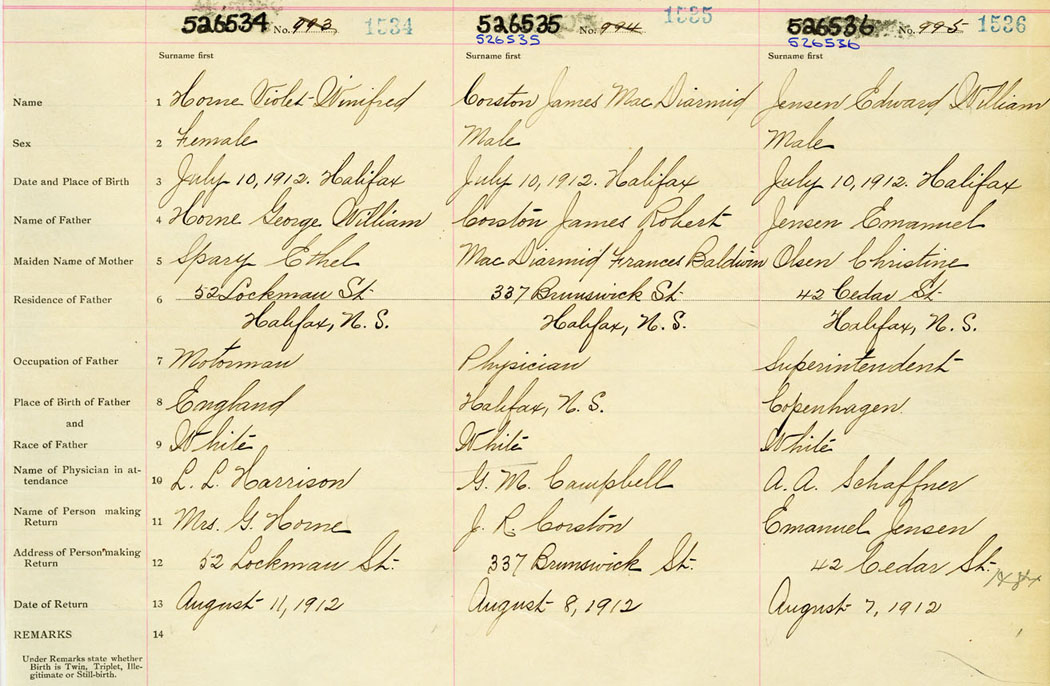 526534 No. 993 1534 526535 No. 994 1535 526536 No. 995 1536
526535 526536
Surname first Surname first Surname first
Name 1 Horne Violet Winifred Corston James MacDiarmid Jensen Edward William
Sex 2 Female Male Male
Date and Place of Birth 3 July 10, 1912. Halifax July 10, 1912. Halifax July 10, 1912. Halifax
Name of Father 4 Horne George William Corston James Robert Jensen Emanuel
Maiden Name of Mother 5 Spary Ethel MacDiarmid Frances Baldwin Olsen Christine
Residence of Father 6 52 Lockman St. 337 Brunswick St. 42 Cedar St.
Halifax, N. S. Halifax, N. S. Halifax, N. S.
Occupation of Father 7 Motorman Physician Superintendent
Place of Birth of Father 8 England Halifax, N. S. Copenhagen
and
Race of Father 9 White White White
Name of Physician in at-
tendance 10 L. L. Harrison G. M. Campbell A. A. Schaffner
Name of Person making
Return 11 Mrs. G. Horne J. R. Corston Emanuel Jensen
Address of Person making
Return 12 52 Lockman St. 337 Brunswick St. 42 Cedar St.
Date of Return 13 August 11, 1912 August 8, 1912 August 7, 1912
REMARKS 14
Under Remarks state whether
Birth is Twin, Triplet, Ille-
gitimate or Still-birth.